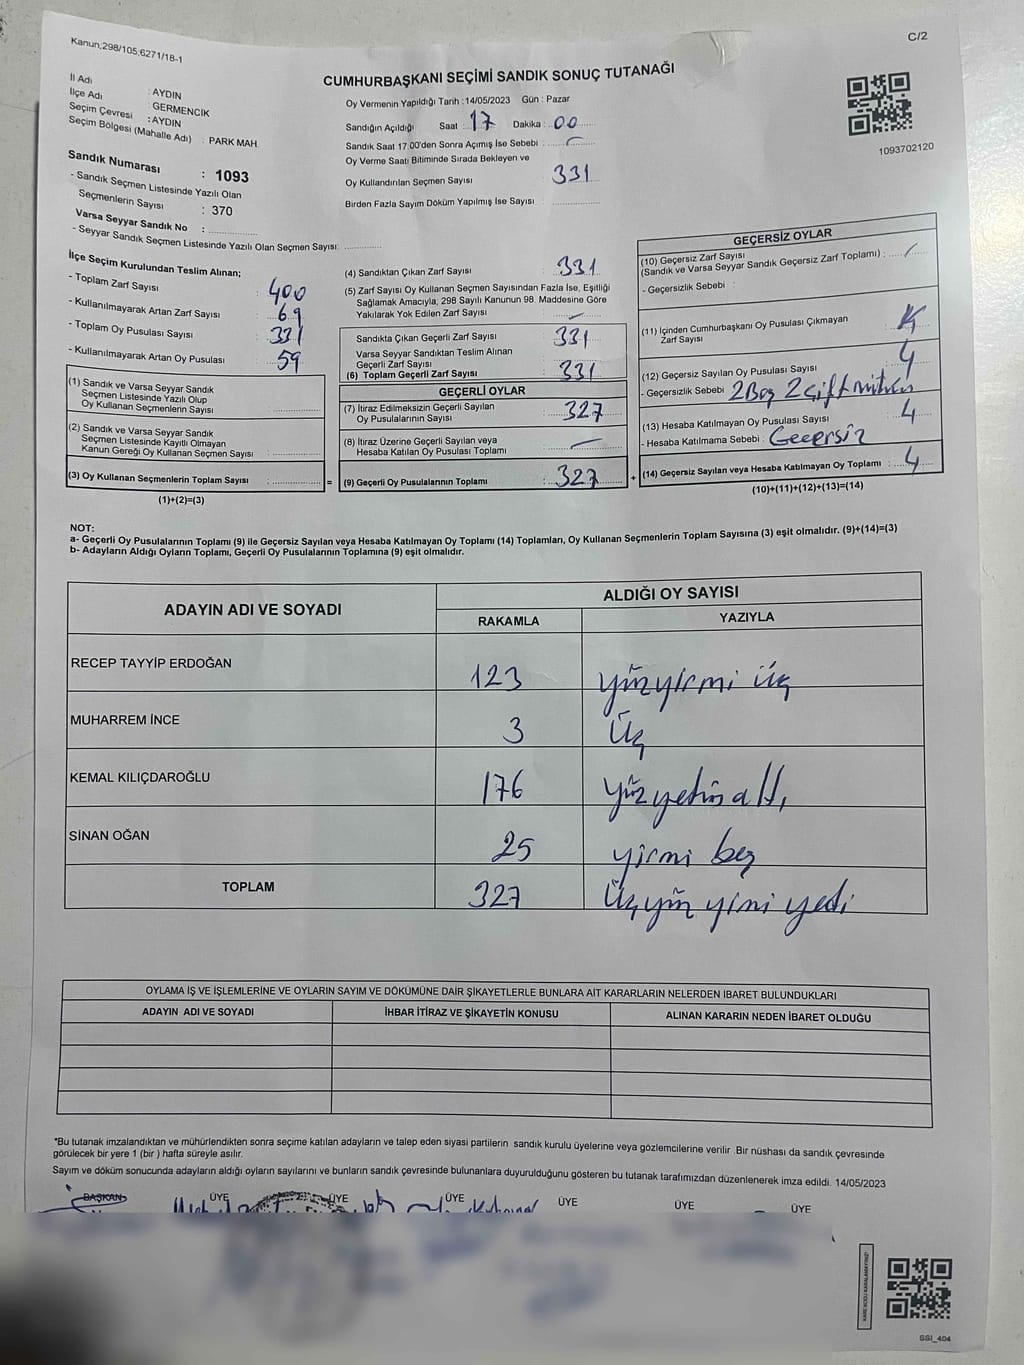 Kanun;298/105;6271/18-1
C/2
CUMHURBAŞKANI SEÇİMİ SANDIK SONUÇ TUTANAĞI
İl Adı : AYDIN
İlçe Adı : GERMENCİK
Seçim Çevresi : AYDIN
Seçim Bölgesi (Mahalle Adı) : PARK MAH.
Sandık Numarası : 1093
- Sandık Seçmen Listesinde Yazılı Olan
Seçmenlerin Sayısı : 370
Varsa Seyyar Sandık No :
- Seyyar Sandık Seçmen Listesinde Yazılı Olan Seçmen Sayısı:
Oy Vermenin Yapıldığı Tarih : 14/05/2023 Gün : Pazar
Sandığın Açıldığı Saat : 17 Dakika : 00
Sandık Saat 17.00'den Sonra Açımış İse Sebebi :
Oy Verme Saati Bitiminde Sırada Bekleyen ve
Oy Kullandırılan Seçmen Sayısı : 331
Birden Fazla Sayım Döküm Yapılmış İse Sayısı :
1093702120
İlçe Seçim Kurulundan Teslim Alınan;
- Toplam Zarf Sayısı : 400
- Kullanılmayarak Artan Zarf Sayısı : 69
- Toplam Oy Pusulası Sayısı : 331
- Kullanılmayarak Artan Oy Pusulası : 59
(1) Sandık ve Varsa Seyyar Sandık
Seçmen Listesinde Yazılı Olup
Oy Kullanan Seçmenlerin Sayısı :
(2) Sandık ve Varsa Seyyar Sandık
Seçmen Listesinde Kayıtlı Olmayan
Kanun Gereği Oy Kullanan Seçmen Sayısı :
(3) Oy Kullanan Seçmenlerin Toplam Sayısı : =
(1)+(2)=(3)
(4) Sandıktan Çıkan Zarf Sayısı : 331
(5) Zarf Sayısı Oy Kullanan Seçmen Sayısından Fazla İse, Eşitliği
Sağlamak Amacıyla, 298 Sayılı Kanunun 98. Maddesine Göre
Yakılarak Yok Edilen Zarf Sayısı :
Sandıkta Çıkan Geçerli Zarf Sayısı : 331
Varsa Seyyar Sandıktan Teslim Alınan
Geçerli Zarf Sayısı :
(6) Toplam Geçerli Zarf Sayısı : 331
GEÇERLİ OYLAR
(7) İtiraz Edilmeksizin Geçerli Sayılan
Oy Pusulalarının Sayısı : 327
(8) İtiraz Üzerine Geçerli Sayılan veya
Hesaba Katılan Oy Pusulası Toplamı :
(9) Geçerli Oy Pusulalarının Toplamı : 327 +
GEÇERSİZ OYLAR
(10) Geçersiz Zarf Sayısı
(Sandık ve Varsa Seyyar Sandık Geçersiz Zarf Toplamı) :
- Geçersizlik Sebebi :
(11) İçinden Cumhurbaşkanı Oy Pusulası Çıkmayan
Zarf Sayısı :
(12) Geçersiz Sayılan Oy Pusulası Sayısı : 4
- Geçersizlik Sebebi : 2 Boş 2 Çift mühür
(13) Hesaba Katılmayan Oy Pusulası Sayısı : 4
- Hesaba Katılmama Sebebi : Geçersiz
(14) Geçersiz Sayılan veya Hesaba Katılmayan Oy Toplamı : 4
(10)+(11)+(12)+(13)=(14)
NOT:
a- Geçerli Oy Pusulalarının Toplamı (9) ile Geçersiz Sayılan veya Hesaba Katılmayan Oy Toplamı (14) Toplamları, Oy Kullanan Seçmenlerin Toplam Sayısına (3) eşit olmalıdır. (9)+(14)=(3)
b- Adayların Aldığı Oyların Toplamı, Geçerli Oy Pusulalarının Toplamına (9) eşit olmalıdır.
ADAYIN ADI VE SOYADI ALDIĞI OY SAYISI
RAKAMLA YAZIYLA
RECEP TAYYİP ERDOĞAN 123 yüzyirmi üç
MUHARREM İNCE 3 Üç
KEMAL KILIÇDAROĞLU 176 yüzyetmiş altı
SİNAN OĞAN 25 yirmi beş
TOPLAM 327 Üçyüz yirmi yedi
OYLAMA İŞ VE İŞLEMLERİNE VE OYLARIN SAYIM VE DÖKÜMÜNE DAİR ŞİKAYETLERLE BUNLARA AİT KARARLARIN NELERDEN İBARET BULUNDUKLARI
ADAYIN ADI VE SOYADI İHBAR İTİRAZ VE ŞİKAYETİN KONUSU ALINAN KARARIN NEDEN İBARET OLDUĞU
*Bu tutanak imzalandıktan ve mühürlendikten sonra seçime katılan adayların ve talep eden siyasi partilerin sandık kurulu üyelerine veya gözlemcilerine verilir .Bir nüshası da sandık çevresinde
görülecek bir yere 1 (bir ) hafta süreyle asılır.
Sayım ve döküm sonucunda adayların aldığı oyların sayılarını ve bunların sandık çevresinde bulunanlara duyurulduğunu gösteren bu tutanak tarafımızdan düzenlenerek imza edildi. 14/05/2023
BAŞKAN ÜYE ÜYE ÜYE ÜYE ÜYE ÜYE
KARE KODU KARALAMAYINIZ!
SSI_404